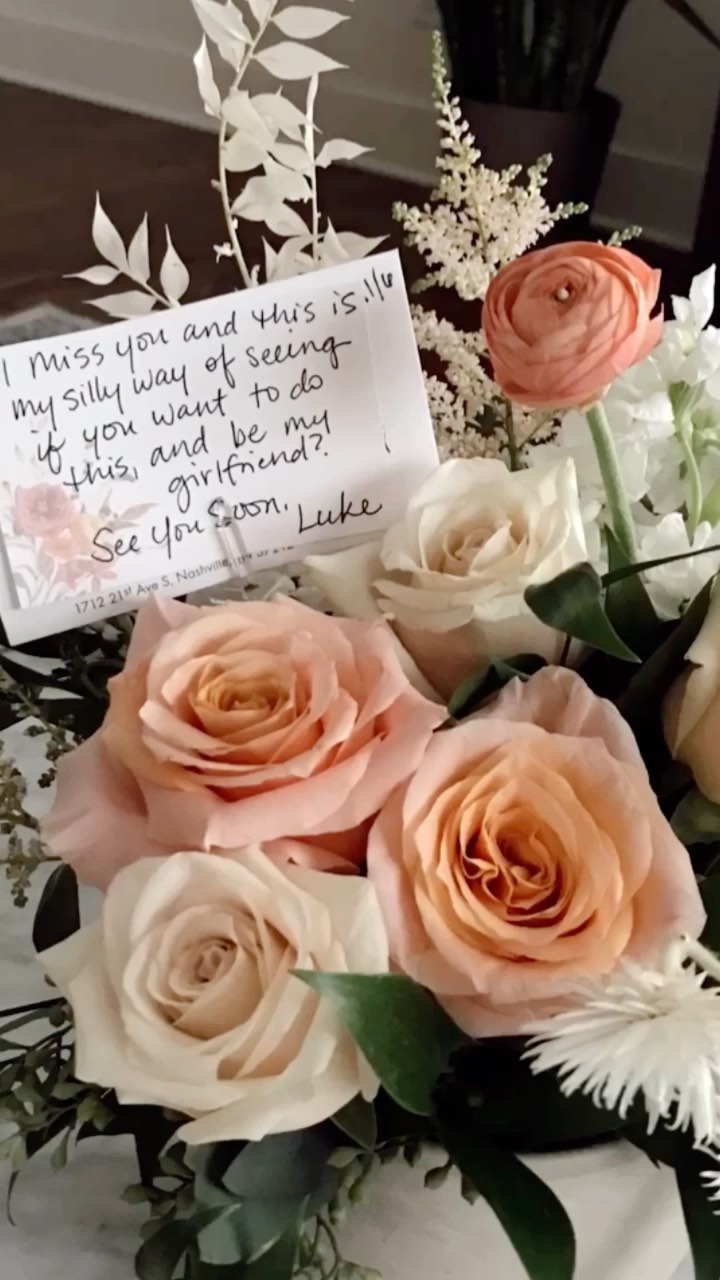 I miss you and this is
my silly way of seeing
if you want to do
this, and be my
girlfriend?
See you soon.
Luke
1712 21st Ave S, Nashville,